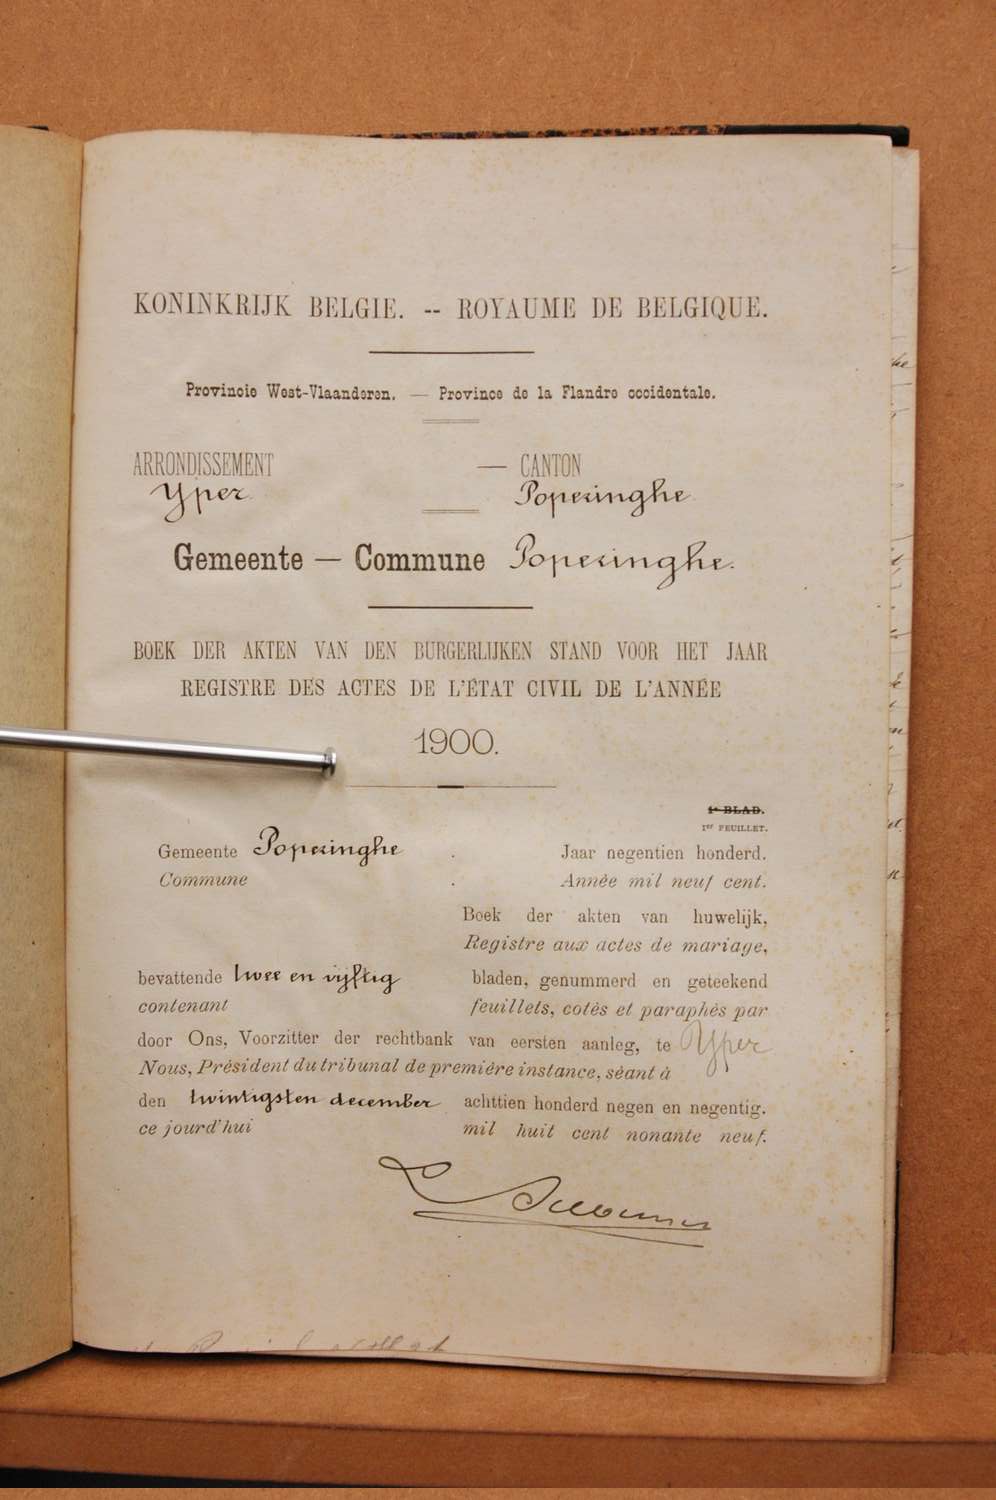 KONINKRIJK BELGIE. -- ROYAUME DE BELGIQUE.
Provincie West-Vlaanderen. — Province de la Flandre occidentale.
ARRONDISSEMENT — CANTON
Yper Poperinghe
Gemeente — Commune Poperinghe.
BOEK DER AKTEN VAN DEN BURGERLIJKEN STAND VOOR HET JAAR
REGISTRE DES ACTES DE L'ÉTAT CIVIL DE L'ANNÉE
1900.
1e BLAD.
1er FEUILLET.
Gemeente Poperinghe Jaar negentien honderd.
Commune Année mil neuf cent.
Boek der akten van huwelijk,
Registre aux actes de mariage,
bevattende twee en vijftig bladen, genummerd en geteekend
contenant feuillets, cotés et paraphés par
door Ons, Voorzitter der rechtbank van eersten aanleg, te Yper
Nous, Président du tribunal de première instance, séant à
den twintigsten december achttien honderd negen en negentig.
ce jourd'hui mil huit cent nonante neuf.